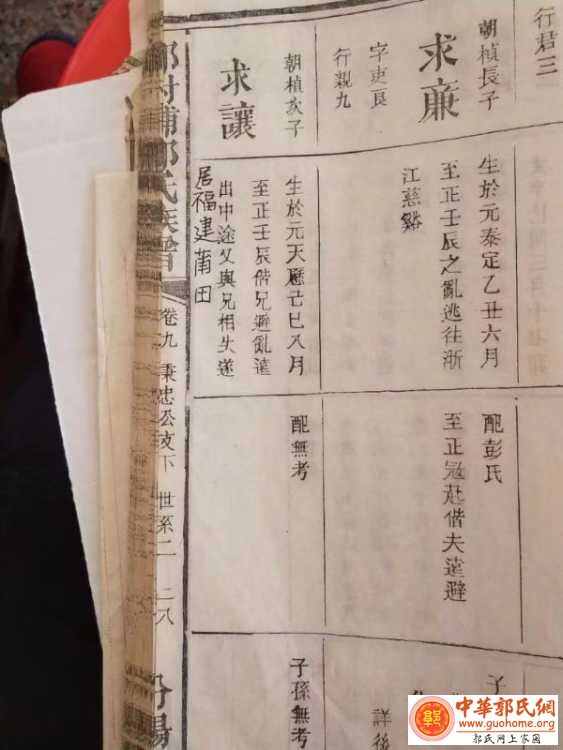 行君三
朝楨長子
求廉
行親九
生於元泰定乙丑六月
至正壬辰之亂逃往浙
江慈谿
配彭氏
至正冦起偕夫遠避
子
詳後
朝楨次子
求讓
生於元天厯己巳八月
至正壬辰偕兄避亂遠
出中途父與兄相失遂
居福建莆田
配無考
子孫無考
氏族譜
卷九 秉忠公支下 世系二 二八
中華郭氏網
www.guohome.org
郭氏网上家园